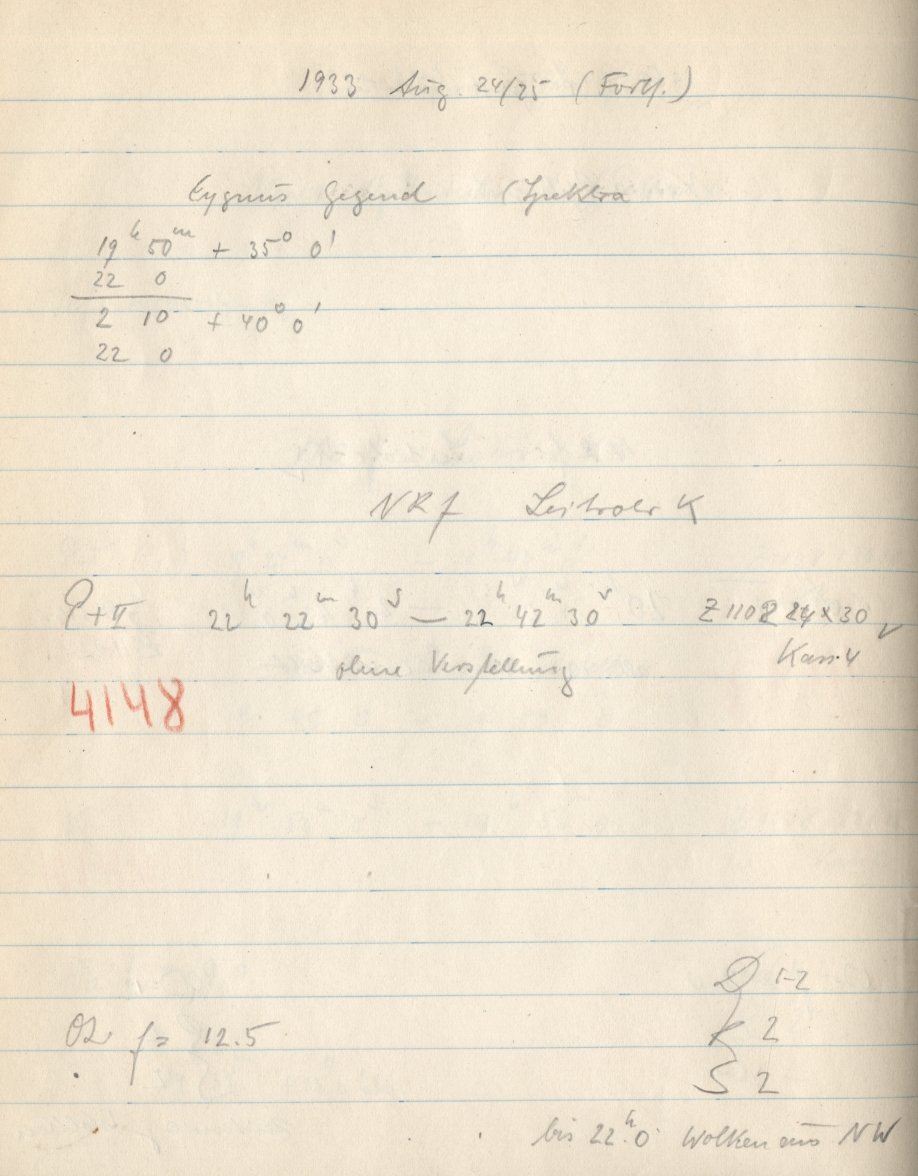 1933 Aug. 24/25 (Forts.)
Cygnus Gegend (Spektra
19h 50m + 35° 0'
22 0
2 10 + 40° 0'
22 0
NRf Leitrohr K
P+II 22h 22m 30s — 22h 42m 30s Z 1108 24x30
ohne Verstellung Kass. 4
4148
f = 12.5
D 1-2
K 2
S 2
bis 22h.0 Wolken aus NW